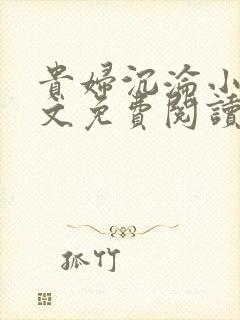 貴婦沉淪小
文免費閱讀
孤竹